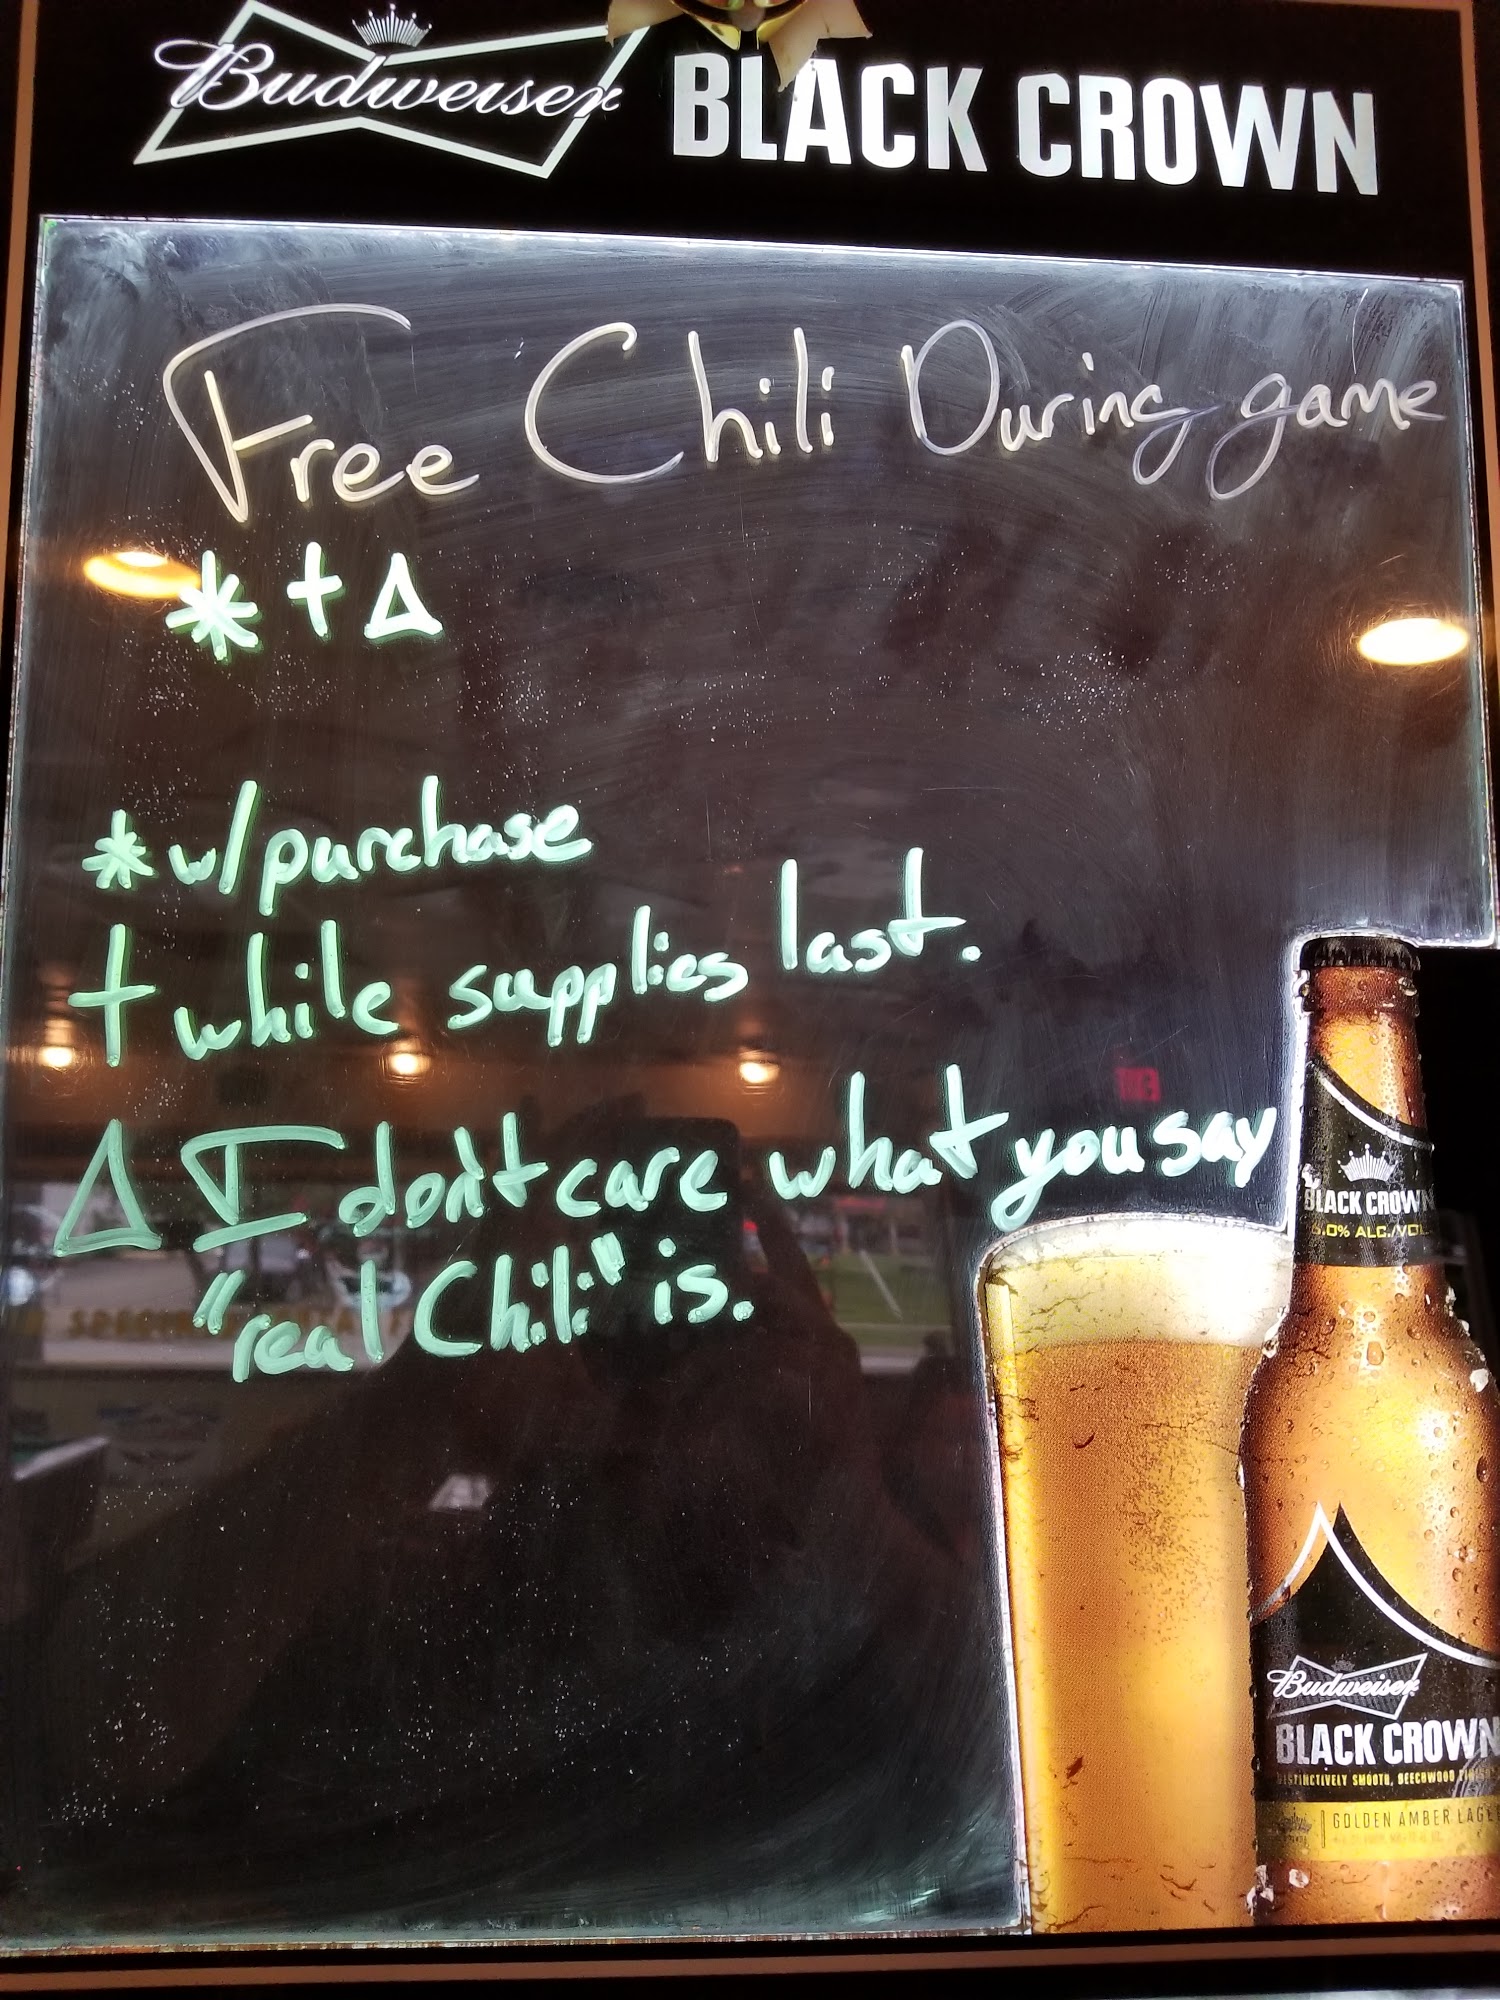 Budweiser BLACK CROWN
Free Chili During game
* † Δ
* w/purchase
† while supplies last.
Δ I don't care what you say
"real Chili" is.
BLACK CROWN
6.0% ALC./VOL.
Budweiser
BLACK CROWN
DISTINCTIVELY SMOOTH, BEECHWOOD
GOLDEN AMBER LAGE